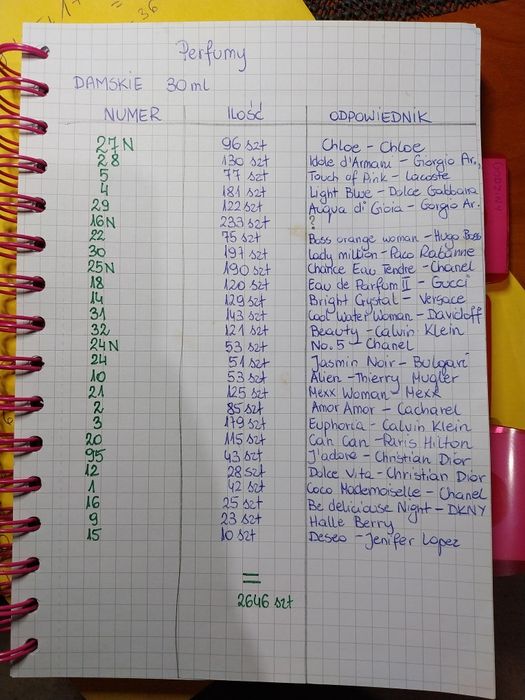 Perfumy
DAMSKIE 30 ml
NUMER ILOŚĆ ODPOWIEDNIK
27N 96 szt Chloe - Chloe
28 130 szt Idole d'Armani - Giorgio Ar.,
5 77 szt Touch of Pink - Lacoste
4 181 szt Light Blue - Dolce Gabbana
29 122 szt Auqua di Gioia - Gorgio Ar.
16N 233 szt ?
22 75 szt Boss orange woman - Hugo Boss
30 197 szt Lady million - Paco Rabanne
25N 190 szt Chance Eau Tendre - Chanel
18 120 szt Eau de Parfum II - Gucci
14 129 szt Bright Crystal - Versace
31 143 szt Cool Water Woman - Davidoff
32 121 szt Beauty - Calvin Klein
24N 53 szt No. 5 - Chanel
24 51 szt Jasmin Noir - Bulgari
10 53 szt Alien - Thierry Mugler
21 125 szt Mexx Woman - Mexx
2 85 szt Amor Amor - Cacharel
3 179 szt Euphoria - Calvin Klein
20 115 szt Can Can - Paris Hilton
95 43 szt J'adore - Christian Dior
12 28 szt Dolce Vita - Christian Dior
1 42 szt Coco Mademoiselle - Chanel
16 25 szt Be deliciouse Night - DKNY
9 23 szt Halle Berry
15 10 szt Deseo - Jenifer Lopez
=
2646 szt